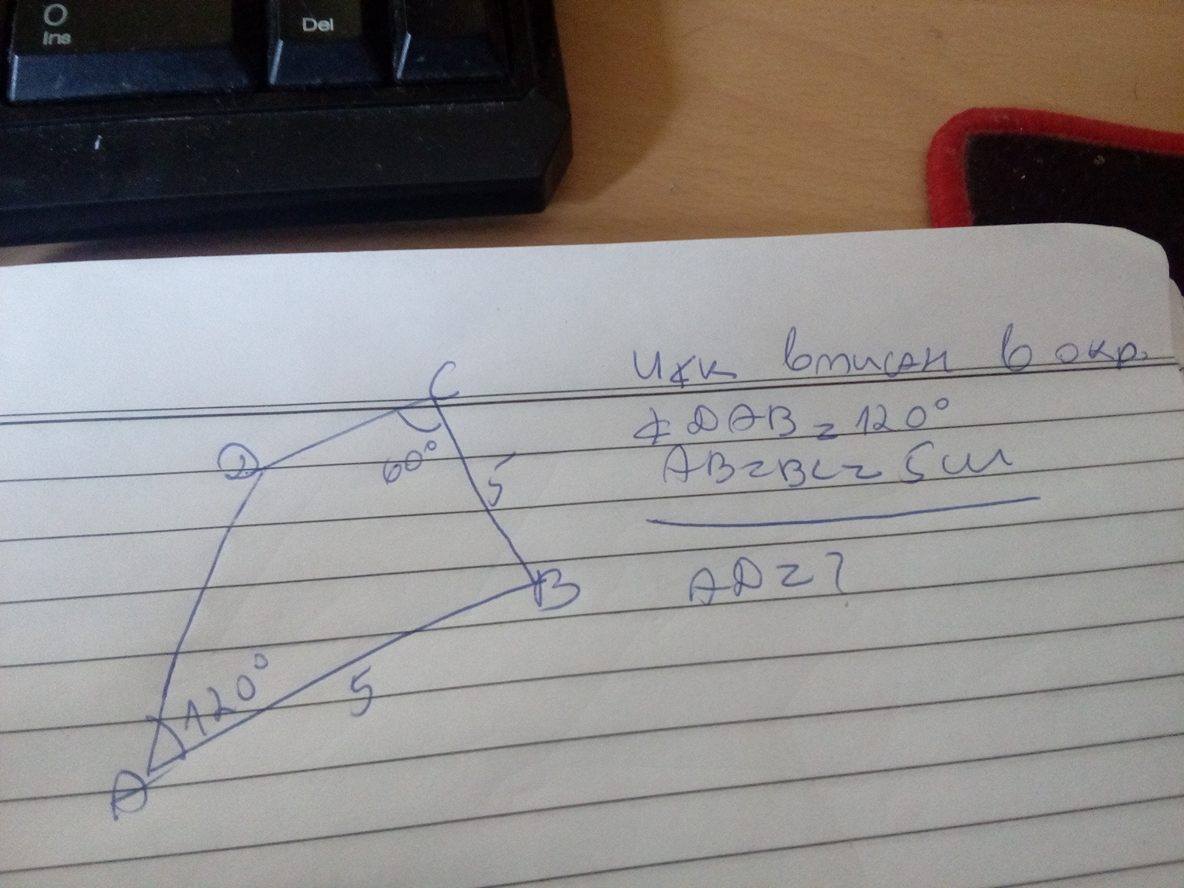 O
Ins
Del
C
ч∡к вписан в окр.
D
60°
5
∡DAB = 120°
AB=BC= 5 см
B
AD=?
120°
5
A